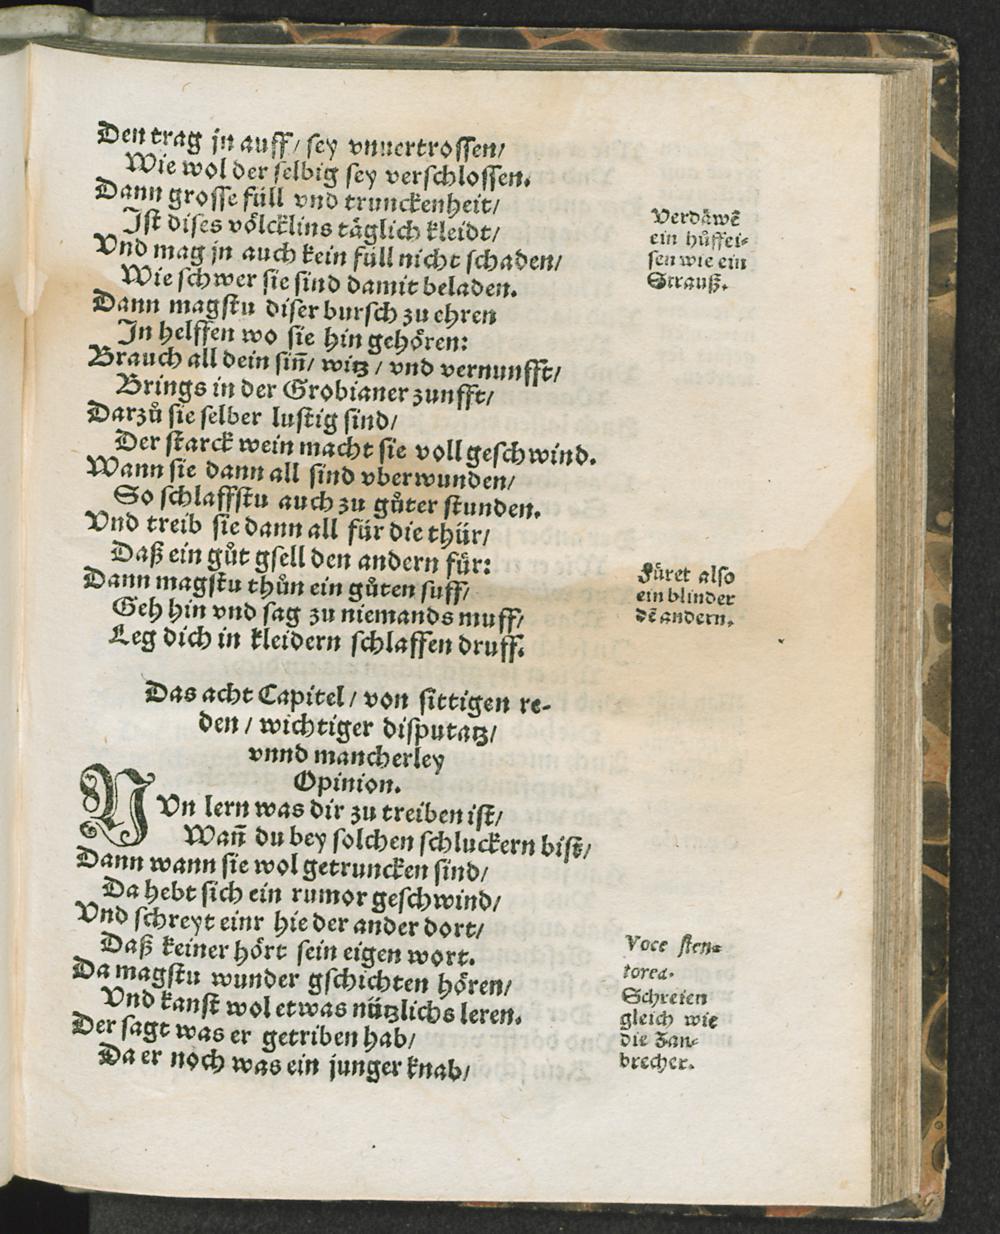 Den trag jn auff/ sey vnuertrossen/
Wie wol der selbig sey verschlossen.
Dann grosse füll vnd trunckenheit/
Ist dises völcklins täglich kleidt/
Vnd mag jn auch kein füll nicht schaden/
Wie schwer sie sind damit beladen.
Dann magstu diser bursch zu ehren
In helffen wo sie hin gehören:
Brauch all dein siñ/ witz/ vnd vernunfft/
Brings in der Grobianer zunfft/
Darzů sie selber lustig sind/
Der starck wein macht sie voll geschwind.
Wann sie dann all sind vberwunden/
So schlaffstu auch zu gůter stunden.
Vnd treib sie dann all für die thür/
Daß ein gůt gsell den andern fůr:
Dann magstu thůn ein gůten suff/
Geh hin vnd sag zu niemands muff/
Leg dich in kleidern schlaffen druff.
Verdäwẽ
ein hůffei-
sen wie ein
Strauß.
Fůret also
ein blinder
dẽ andern.
Das acht Capitel/ von sittigen re-
den/ wichtiger disputatz/
vnnd mancherley
Opinion.
NVn lern was dir zu treiben ist/
Wañ du bey solchen schluckern bist/
Dann wann sie wol getruncken sind/
Da hebt sich ein rumor geschwind/
Vnd schreyt einr hie der ander dort/
Daß keiner hört sein eigen wort.
Da magstu wunder gschichten hören/
Vnd kanst wol etwas nützlichs leren.
Der sagt was er getriben hab/
Da er noch was ein junger knab/
Voce sten-
torea.
Schreien
gleich wie
die Zan-
brecher.